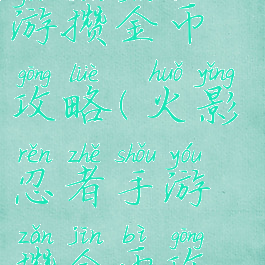 游攒金币
gōng lüè huǒ yǐng
攻略(火影
rěn zhě shǒu yóu
忍者手游
zǎn jīn bì gōng
攒金币攻